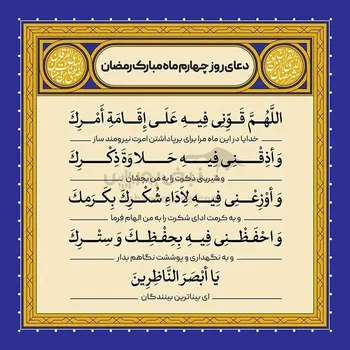 دعای روز چهارم ماه مبارک رمضان
اللَّهُمَّ قَوِّنِي فِيهِ عَلَى إِقَامَةِ أَمْرِكَ
خدایا در این ماه مرا برای برپاداشتن امرت نیرومند ساز
وَ أَذِقْنِي فِيهِ حَلاوَةَ ذِكْرِكَ
و شیرینی ذکرت را به من بچشان
وَ أَوْزِعْنِي فِيهِ لِأَدَاءِ شُكْرِكَ بِكَرَمِكَ
و به کرمت ادای شکرت را به من الهام فرما
وَ احْفَظْنِي فِيهِ بِحِفْظِكَ وَ سِتْرِكَ
و به نگهداری و پوششت نگاهم بدار
يَا أَبْصَرَ النَّاظِرِينَ
ای بیناترین بینندگان